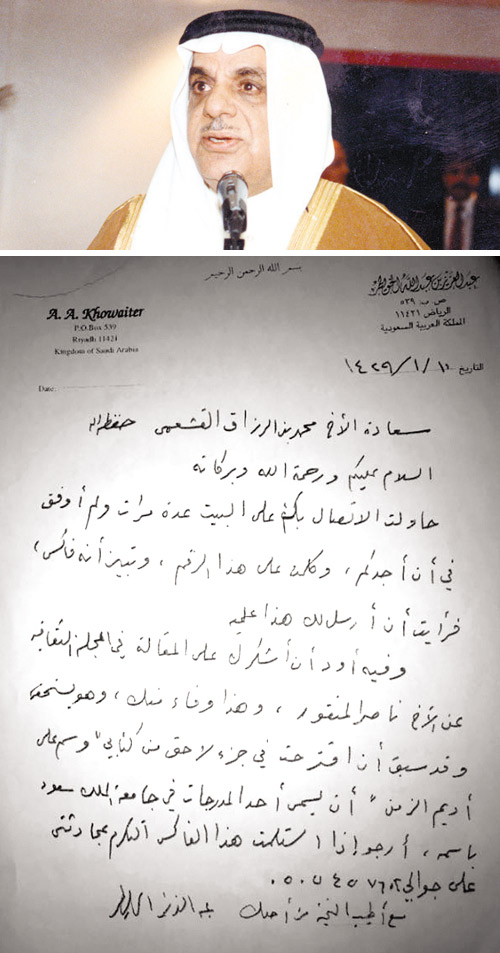 بسم الله الرحمن الرحيم
A. A. Khowaiter
P.O.Box 539
Riyadh 11421
Kingdom of Saudi Arabia
Date:
عبد العزيز بن عبد الله الخويطر
ص. ب: ٥٣٩
الرياض ١١٤٢١
المملكة العربية السعودية
التاريخ ١٤٢٩/١/١٥
سعادة الأخ محمد بن الرزاق القشعمي حفظه الله
السلام عليكم ورحمة الله وبركاته
حاولت الاتصال بكم على البيت عدة مرات ولم أوفق
في أن أجدكم، وكلمت على هذا الرقم، وتبين أنه فاكس،
فرأيت أن أرسل لك هذا عليه
وفيه أود أن أشكرك على المقالة في المجلة الثقافية
عن الأخ ناصر المنقور، وهذا وفاء منك، وهو يستحقه
وقد سبق أن اقترحت في جزء لاحق من كتابي "وسم على
أديم الزمن" أن يسمى أحد المدرجات في جامعة الملك سعود
باسمه، أرجو إذا استلمت هذا الفاكس التكرم بمحادثتي
على جوالي
مع أطيب التحية من أخيك عبد العزيز الخويطر